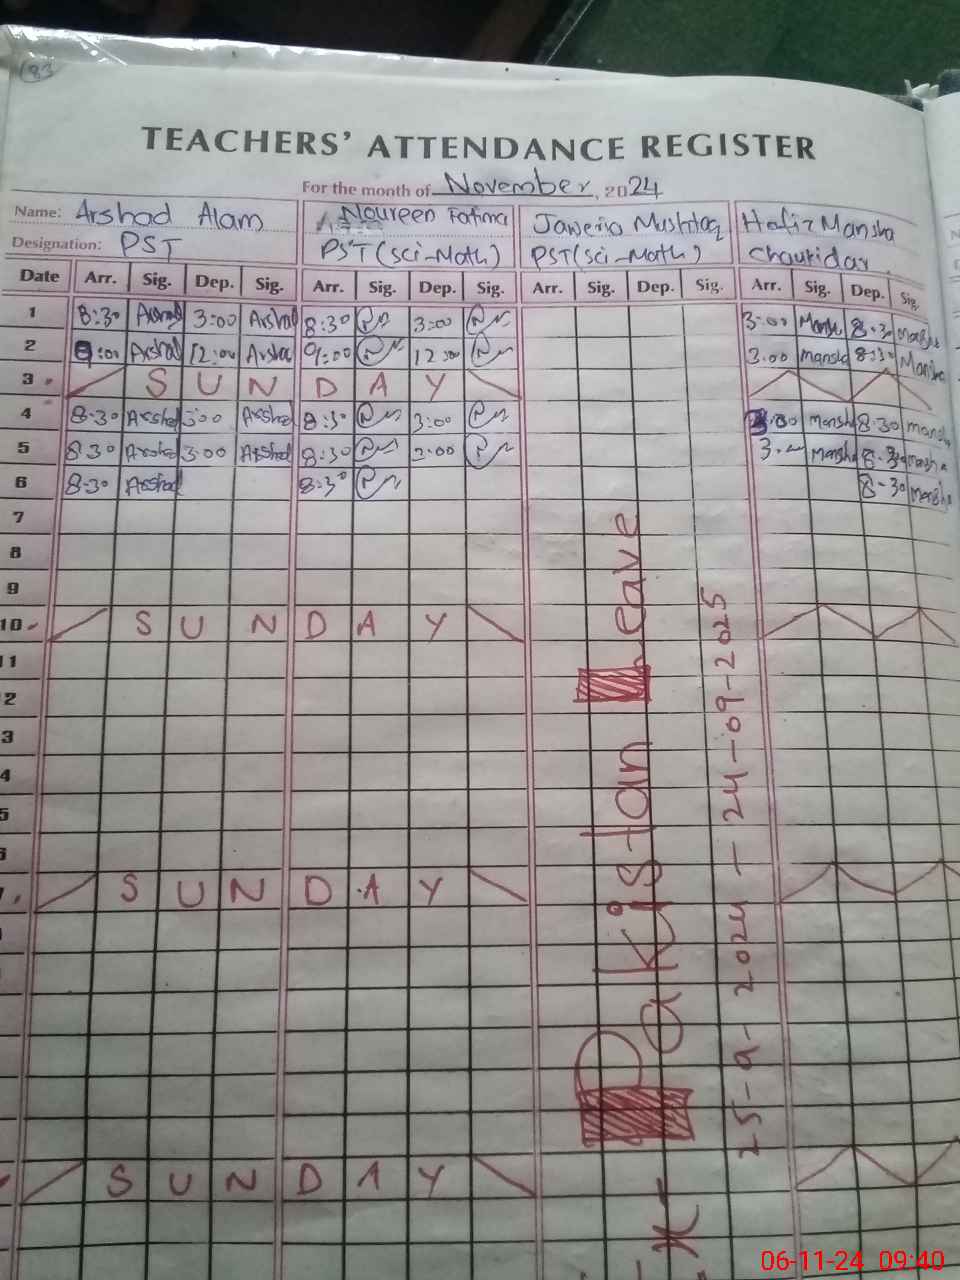 83
TEACHERS' ATTENDANCE REGISTER
For the month of November, 2024
Name: Arshad Alam Noureen Fatima Javeria Mushtaq Hafiz Mansha
Designation: PST PST (Sci-Math) PST (Sci-Math) Chaukidar
Date Arr. Sig. Dep. Sig. Arr. Sig. Dep. Sig. Arr. Sig. Dep. Sig. Arr. Sig. Dep. Sig.
1 8:30 Arshad 3:00 Arshad 8:30 3:00 3:00 Mansha 8:30 Mansha
2 9:00 Arshad 12:00 Arshad 9:00 12:00 3.00 Mansha 8:30 Mansha
3 SUNDAY
4 8:30 Arshad 3:00 Arshad 8:30 3:00 3:00 Mansha 8:30 Mansha
5 8:30 Arshad 3:00 Arshad 8:30 3:00 Mansha 8:30 Mansha
6 8:30 Arshad 8:30 8:30 Mansha
7
8
9
10 SUNDAY
11
2
3
4
5
6
7 SUNDAY
SUNDAY
Pakistan Leave
25-9-2024 - 24-09-2025
06-11-24 09:40